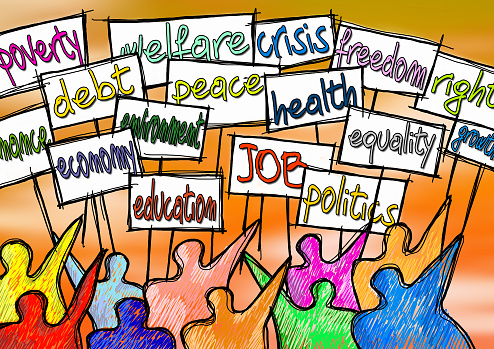 poverty
welfare
crisis
freedom
right
debt
peace
health
environment
equality
growth
economy
JOB
education
politics